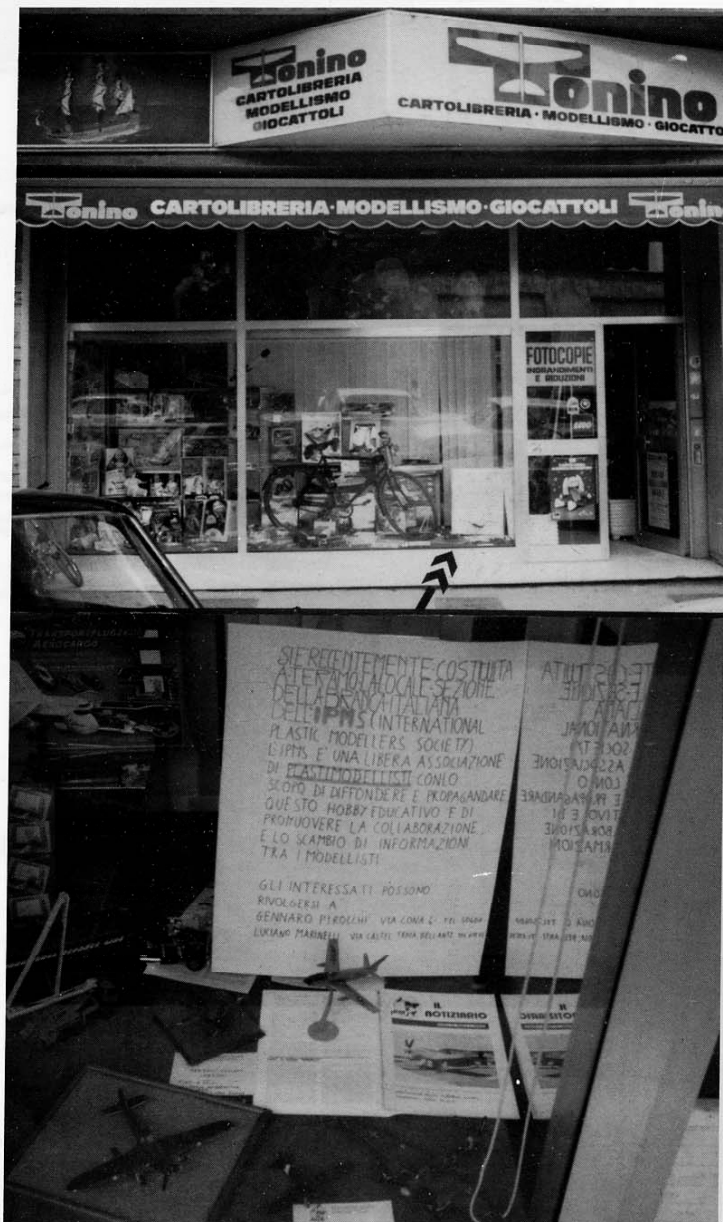 Tonino
CARTOLIBRERIA
MODELLISMO
GIOCATTOLI
Tonino
CARTOLIBRERIA · MODELLISMO · GIOCATTO
Tonino CARTOLIBRERIA · MODELLISMO · GIOCATTOLI Tonin
FOTOCOPIE
INGRANDIMENTI
E RIDUZIONI
SI È RECENTEMENTE COSTITUITA
A TERAMO LA LOCALE SEZIONE
DELLA BRANCA ITALIANA
DELL'IPMS (INTERNATIONAL
PLASTIC MODELLERS SOCIETY)
L'IPMS E' UNA LIBERA ASSOCIAZIONE
DI PLASTIMODELLISTI CON LO
SCOPO DI DIFFONDERE E PROPAGANDARE
QUESTO HOBBY EDUCATIVO E DI
PROMUOVERE LA COLLABORAZIONE
E LO SCAMBIO DI INFORMAZIONI
TRA I MODELLISTI
GLI INTERESSATI POSSONO
RIVOLGERSI A
GENNARO PIROCCHI VIA CONA
LUCIANO MARINELLI VIA CASTEL
IL
NOTIZIARIO
IL
NOTIZIARIO